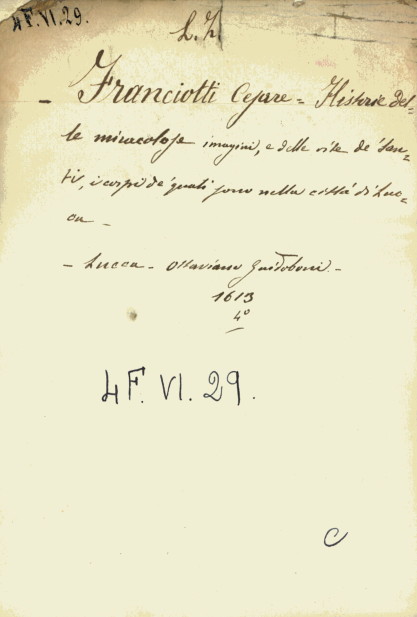 4F.VI.29.
L.Z.
- Franciotti Cesare = Historie del-
le miracolose imagini, e delle vite de' San-
ti, i corpi de' quali sono nella città di Luc-
ca -
- Lucca - Ottaviano Guidoboni -
1613
4°
4F. VI. 29.
C